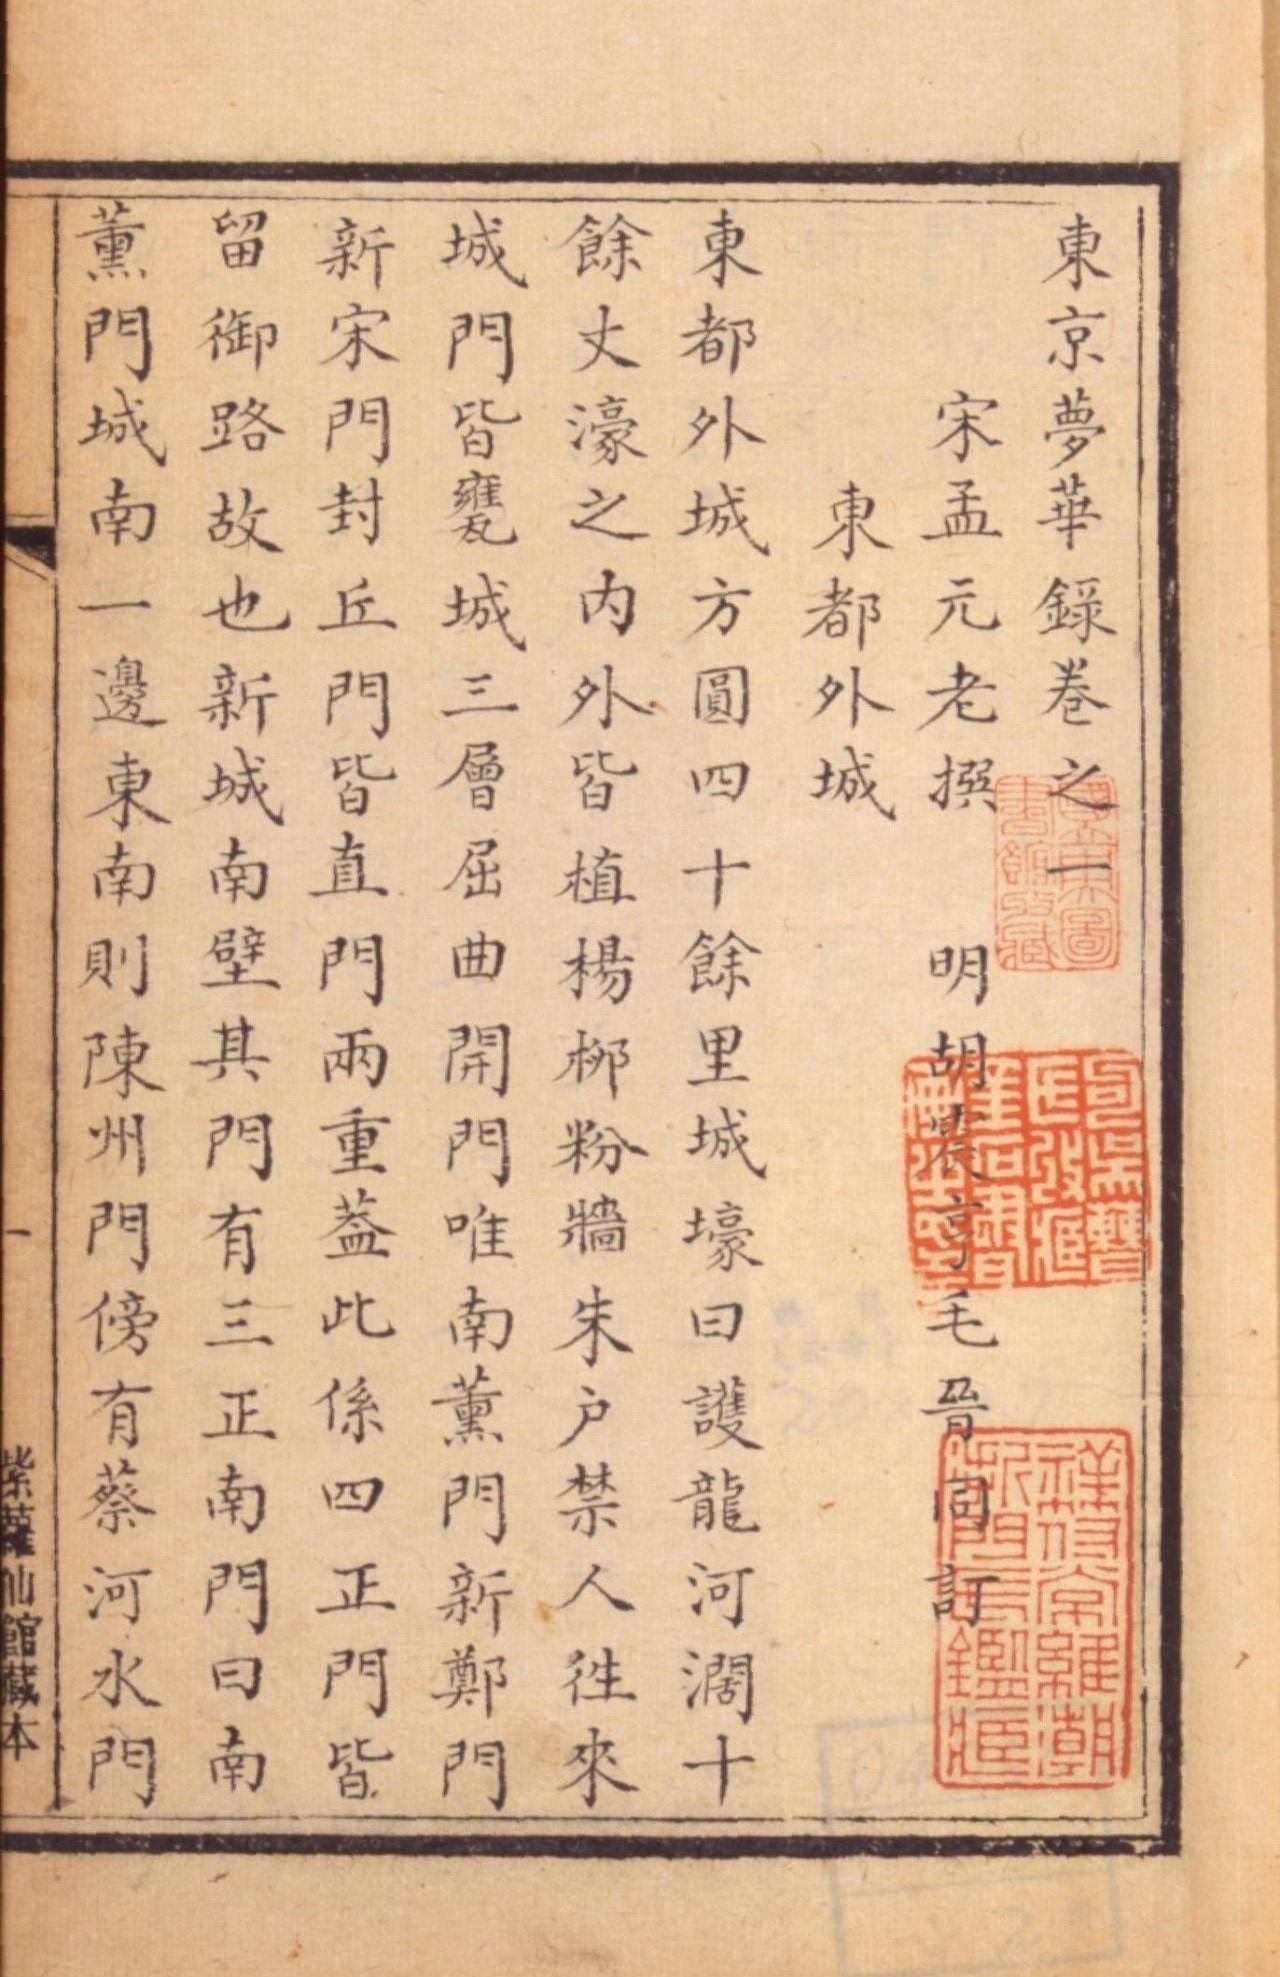 東京夢華錄卷之一
宋孟元老撰 明胡震亨毛晉同訂
東都外城
東都外城方圓四十餘里城壕曰護龍河濶十
餘丈濠之內外皆植楊柳粉牆朱户禁人徃來
城門皆甕城三層屈曲開門唯南薰門新鄭門
新宋門封丘門皆直門兩重葢此係四正門皆
留御路故也新城南壁其門有三正南門曰南
薰門城南一邊東南則陳州門傍有蔡河水門
一
紫蘿仙館藏本
祥符常維潮
浙門氏鑑藏